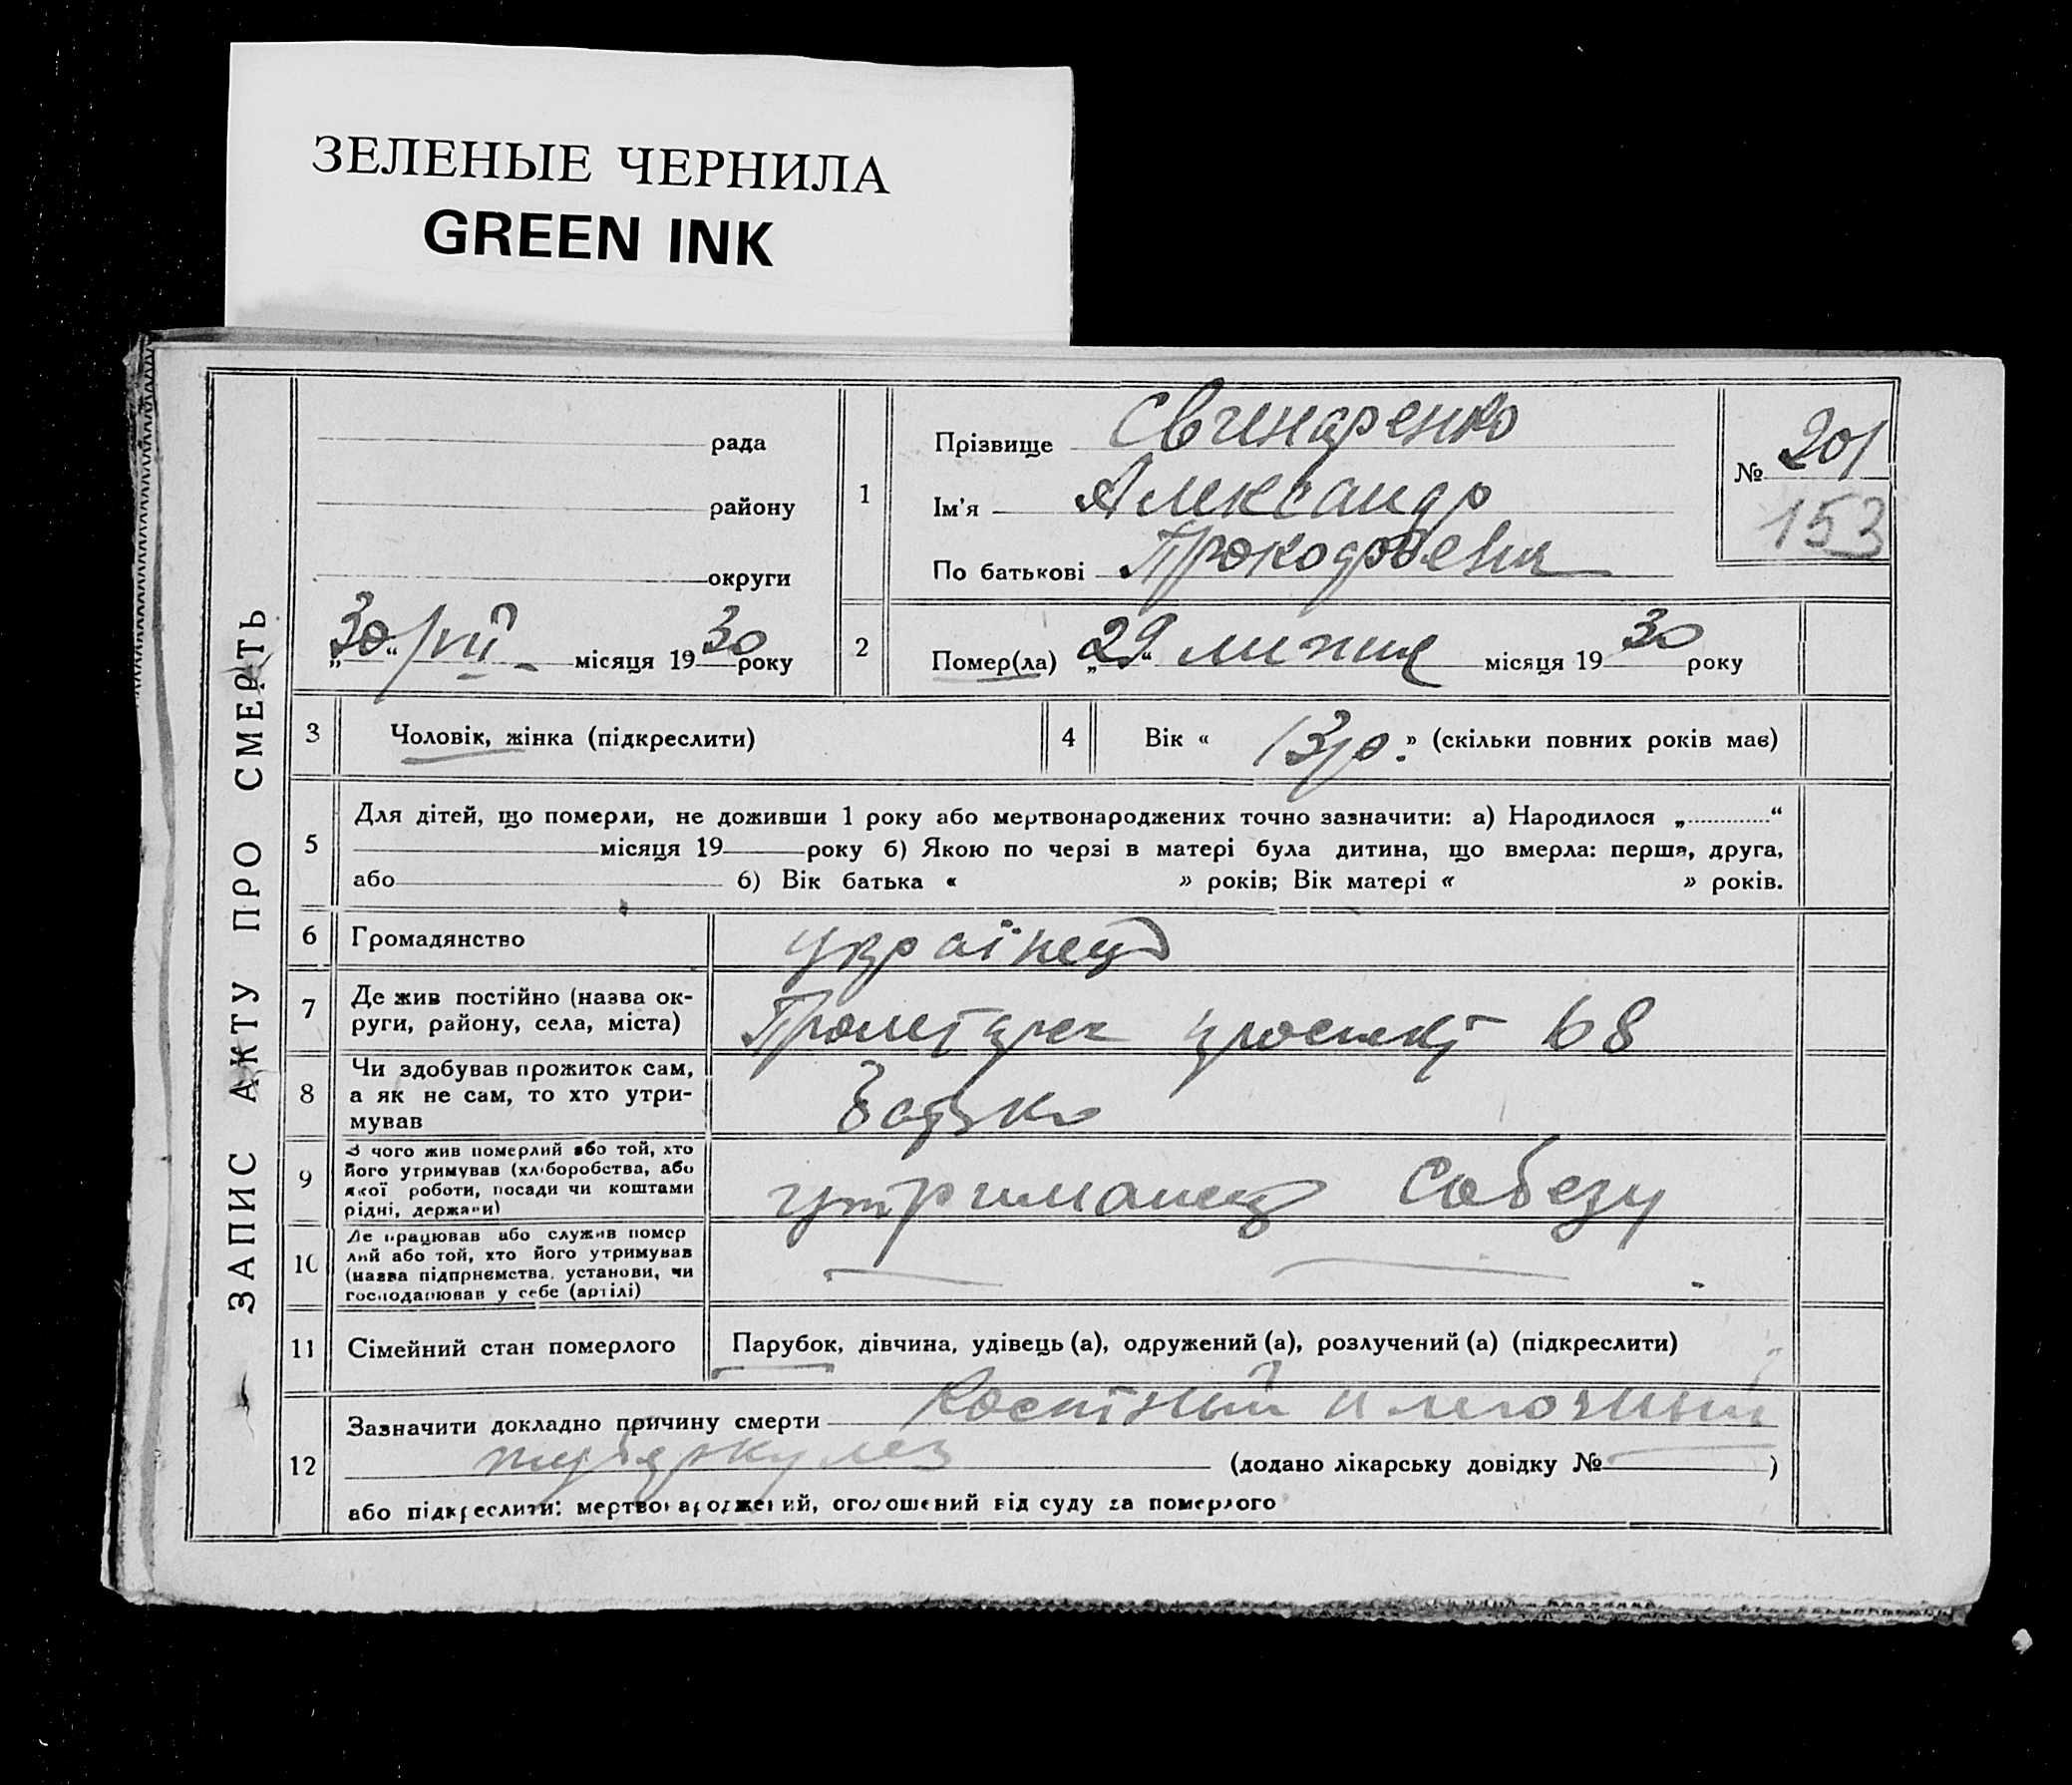 ЗЕЛЕНЫЕ ЧЕРНИЛА
GREEN INK
ЗАПИС АКТУ ПРО СМЕРТЬ
рада
району
округи
„30“/VII местяця 1930 року
1
Прізвище Свинаренко
Ім'я Александр
По батькові
№ 201
153
2
Помер(ла) „29“ липня місяця 1930 року
3 Чоловік, жінка (підкреслити)
4 Вік « 13 р. » (скільки повних років має)
5
Для дітей, що померли, не доживши 1 року або мертвонароджених точно зазначити: а) Народилося „ “
місяця 19 року б) Якою по черзі в матері була дитина, що вмерла: перша, друга,
або б) Вік батька « » років; Вік матері « » років.
6 Громадянство українець
7
Де жив постійно (назва ок-
руги, району, села, міста)
проспект 68
8
Чи здобував прожиток сам,
а як не сам, то хто утри-
мував
батько
9
З чого жив померлий або той, хто
його утримував (хліборобства, або
якої роботи, посади чи коштами
рідні, держави)
утриманец Собезу
10
Де працював або служив помер
лий або той, хто його утримував
(назва підприємства, установи, чи
господарював у себе (артілі)
11 Сімейний стан померлого
Парубок, дівчина, удівець (а), одружений (а), розлучений (а) (підкреслити)
12
Зазначити докладно причину смерти Костный и легочный
туберкулез (додано лікарську довідку № )
або підкреслити: мертвонароджений, оголошений від суду за померлого